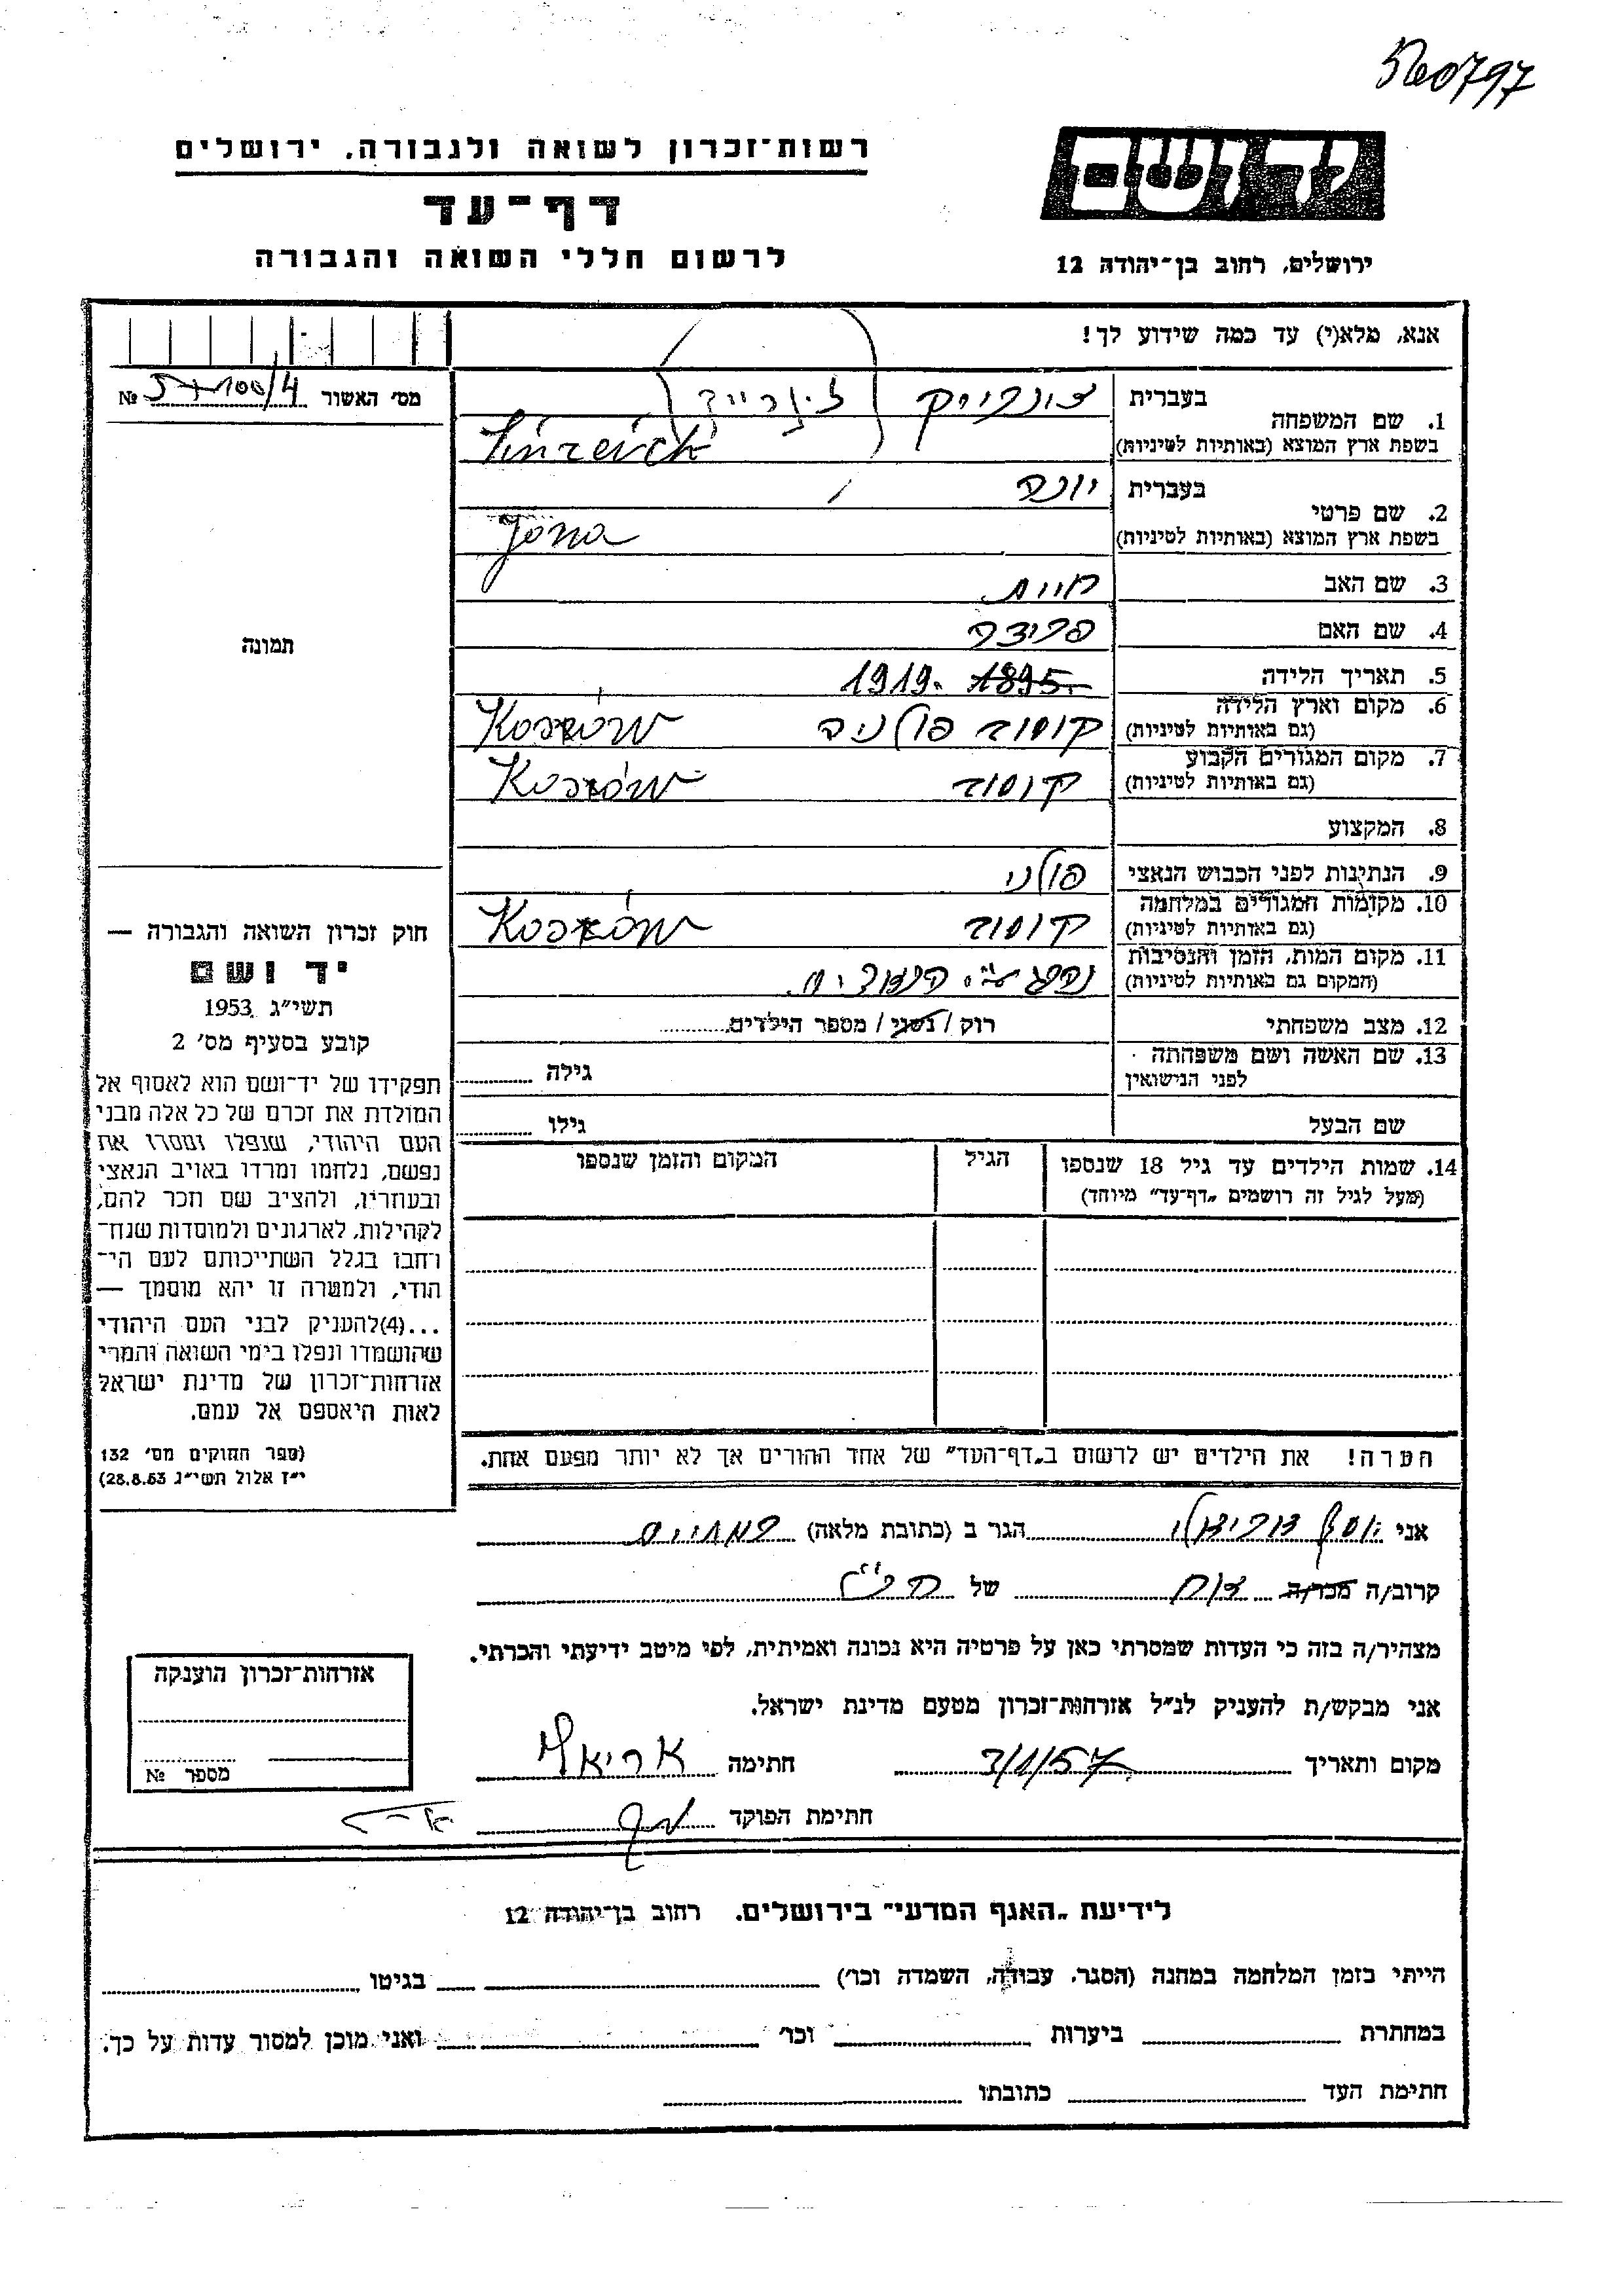 560797
יד ושם
ירושלים, רחוב בן־יהודה 12
רשות־זכרון לשואה ולגבורה, ירושלים
דף־עד
לרשום חללי השואה והגבורה
אנא, מלא(י) עד כמה שידוע לך!
מס׳ האשור № 57100/4
1. שם המשפחה בעברית
בשפת ארץ המוצא (באותיות לטיניות)
2. שם פרטי בעברית יונה
בשפת ארץ המוצא (באותיות לטיניות) Jona
3. שם האב חיים
4. שם האם
5. תאריך הלידה 1895 1919
6. מקום וארץ הלידה קוסוב פולניה Kosów
(גם באותיות לטיניות)
7. מקום המגורים הקבוע קוסוב Kosów
(גם באותיות לטיניות)
8. המקצוע
9. הנתינות לפני הכבוש הנאצי פולני
10. מקומות המגורים במלחמה קוסוב Kosów
(גם באותיות לטיניות)
11. מקום המות, הזמן והנסיבות נהרג ע״י הנאצים
(המקום גם באותיות לטיניות)
12. מצב משפחתי רוק / נשוי / מספר הילדים
13. שם האשה ושם משפחתה גילה
לפני הנישואין
שם הבעל גילו
14. שמות הילדים עד גיל 18 שנספו הגיל המקום והזמן שנספו
(מעל לגיל זה רושמים „דף־עד״ מיוחד)
הערה! את הילדים יש לרשום ב„דף־העד״ של אחד ההורים אך לא יותר מפעם אחת.
תמונה
חוק זכרון השואה והגבורה —
יד ושם
תשי״ג 1953
קובע בסעיף מס׳ 2
תפקידו של יד־ושם הוא לאסוף אל
המולדת את זכרם של כל אלה מבני
העם היהודי, שנפלו ומסרו את
נפשם, נלחמו ומרדו באויב הנאצי
ובעוזריו, ולהציב שם וזכר להם,
לקהילות, לארגונים ולמוסדות שנח־
רחבו בגלל השתייכותם לעם הי־
הודי, ולמטרה זו יהא מוסמך —
...(4)להעניק לבני העם היהודי
שהושמדו ונפלו בימי השואה והמרי
אזרחות־זכרון של מדינת ישראל
לאות היאספם אל עמם.
(ספר החוקים מס׳ 132
י״ז אלול תשי״ג 28.8.53)
אני יוסף הגר ב (כתובת מלאה)
קרוב/ה מכר/ה של
מצהיר/ה בזה כי העדות שמסרתי כאן על פרטיה היא נכונה ואמיתית, לפי מיטב ידיעתי והכרתי.
אני מבקש/ת להעניק לנ״ל אזרחות־זכרון מטעם מדינת ישראל.
מקום ותאריך 3/1/57 חתימה
חתימת הפוקד
אזרחות־זכרון הוענקה
מספר №
לידיעת „האגף המדעי״ בירושלים, רחוב בן־יהודה 12
הייתי בזמן המלחמה במחנה (הסגר, עבודה, השמדה וכו׳) בגיטו
במחתרת ביערות וכו׳ ואני מוכן למסור עדות על כך.
חתימת העד כתובתו